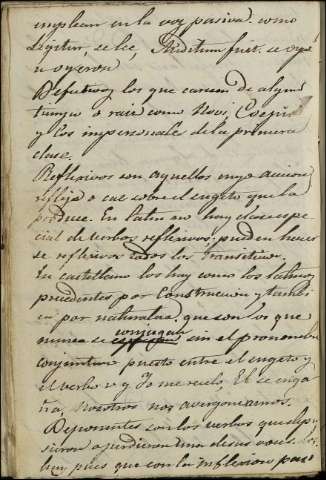 emplean en la voz pasiva como
Legitur, se lee, Auditum fuit, se oyó
u oyeron
Defectivos los que carecen de algun
tiempo o raiz como Novi, Coepi
y los impersonales de la primera
clase.
Reflexivos son aquellos cuya accion
refleja o cae sobre el sugeto que la
produce. En latin no hay clase espe-
cial de verbos reflexivos, pueden hacer
se reflexivos todos los transitivos.
En castellano los hay como los latinos
precedentes por construccion y tambi
en por naturaleza, que son los que
nunca se conjugan sin el pronombre
conjuntivo puesto entre el sugeto y
el verbo Yo me duelo, El se enga
ña, Nosotros nos avergonzamos.
Deponentes son los verbos que depu
sieron o perdieron una de sus voces
pues que con la inflexion pas